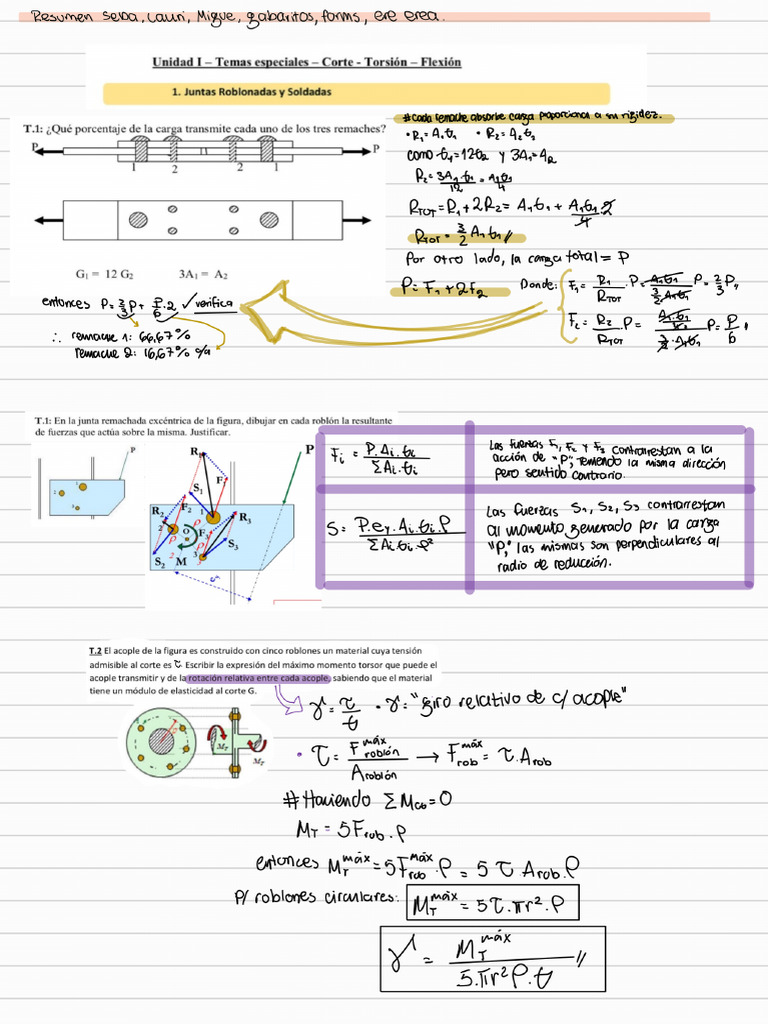 Resumen Seba, Lauri, Migue, gabaritos, forms, ere erea.
Unidad I – Temas especiales – Corte - Torsión – Flexión
1. Juntas Roblonadas y Soldadas
T.1: ¿Qué porcentaje de la carga transmite cada uno de los tres remaches?
P P
1 2 2 1
G₁ = 12 G₂ 3A₁ = A₂
# Cada remache absorbe carga proporcional a su rigidez.
• R₁ = A₁G₁ • R₂ = A₂G₂
como G₁ = 12G₂ y 3A₁ = A₂
R₂ = 3A₁G₁/12 = A₁G₁/4
R_TOT = R₁ + 2R₂ = A₁G₁ + A₁G₁/4 · 2
R_TOT = 3/2 A₁G₁ //
Por otro lado, la carga total = P
P = F₁ + 2F₂ Donde: F₁ = R₁/R_TOT · P = A₁G₁/(3/2 A₁G₁) P = 2/3 P //
F₂ = R₂/R_TOT P = (A₁G₁/4)/(3/2 · A₁G₁) P = P/6 //
entonces P = 2/3 P + P/6 · 2 ✓ verifica
∴ remache 1: 66,67%
remache 2: 16,67% c/u
T.1: En la junta remachada excéntrica de la figura, dibujar en cada roblón la resultante
de fuerzas que actúa sobre la misma. Justificar.
P
1
2
3
R₁ P
S₁ F₁
R₂ F₂ 1 R₃
2 ρ O F₃
S₃
S₂ 2 M 3
Fᵢ = P.Aᵢ.Gᵢ / ΣAᵢ.Gᵢ
Las fuerzas F₁, F₂ y F₃ contrarrestan a la
acción de "P", teniendo la misma dirección
pero sentido contrario.
S = P.eᵧ.Aᵢ.Gᵢ.ρ / ΣAᵢ.Gᵢ.ρ²
Las fuerzas S₁, S₂, S₃ contrarrestan
al momento generado por la carga
"P", las mismas son perpendiculares al
radio de reducción.
T.2 El acople de la figura es construido con cinco roblones un material cuya tensión
admisible al corte es τ. Escribir la expresión del máximo momento torsor que puede el
acople transmitir y de la rotación relativa entre cada acople, sabiendo que el material
tiene un módulo de elasticidad al corte G.
ρ M_T M_T
γ = τ/G • γ = "giro relativo de c/acople"
• τ = F^máx_roblón / A_roblón → F^máx_rob = τ.A_rob
# Haciendo ΣM_CG = 0
M_T = 5F_rob.ρ
entonces M_T^máx = 5F^máx_rob.ρ = 5 τ A_rob.ρ
P/ roblones circulares: M_T^máx = 5τ.πr².ρ
γ = M_T^máx / 5.πr²ρ.G //